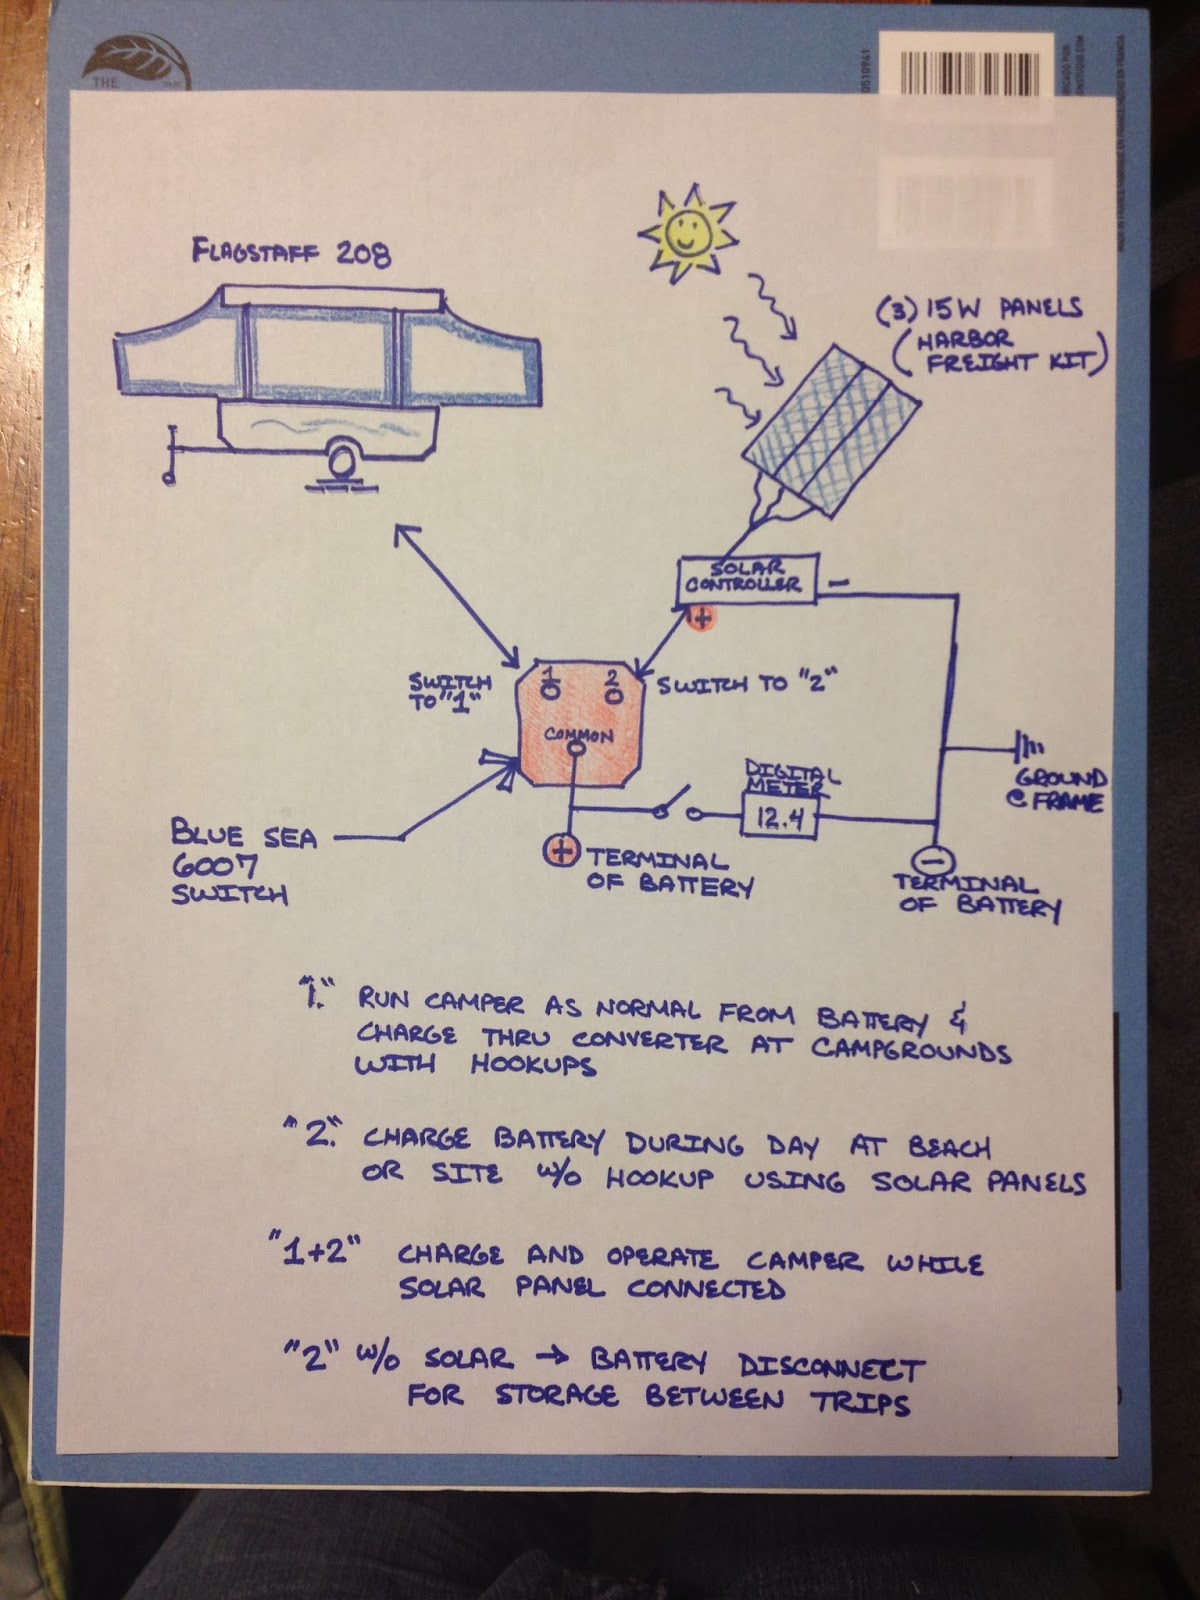 THE
0510941
FLAGSTAFF 208
(3) 15W PANELS
(HARBOR
FREIGHT KIT)
SOLAR
CONTROLLER
-
+
SWITCH
TO "1"
1
2
SWITCH TO "2"
COMMON
DIGITAL
METER
12.4
GROUND
@ FRAME
BLUE SEA
6007
SWITCH
+
TERMINAL
OF BATTERY
-
TERMINAL
OF BATTERY
"1." RUN CAMPER AS NORMAL FROM BATTERY &
CHARGE THRU CONVERTER AT CAMPGROUNDS
WITH HOOKUPS
"2." CHARGE BATTERY DURING DAY AT BEACH
OR SITE W/O HOOKUP USING SOLAR PANELS
"1+2" CHARGE AND OPERATE CAMPER WHILE
SOLAR PANEL CONNECTED
"2" W/O SOLAR → BATTERY DISCONNECT
FOR STORAGE BETWEEN TRIPS